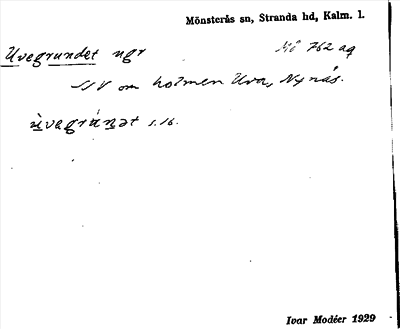 Mönsterås sn, Stranda hd, Kalm. l.
Uvegrundet ugr Mö 762 aq
SV om holmen Uva, Nynäs.
ùvegrúnət s. 16.
Ivar Modéer 1929